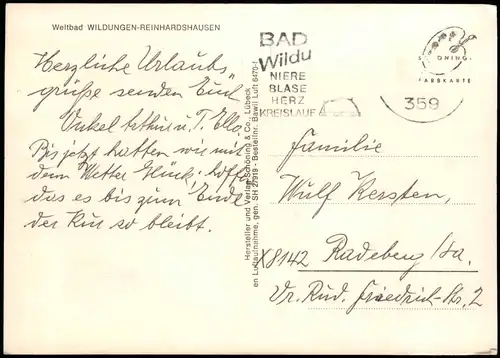 Weltbad WILDUNGEN-REINHARDSHAUSEN
Herzliche Urlaubs
grüße senden Euch
Onkel Arthur u. T. Ella.
Bis jetzt hatten wir mit
dem Wetter Glück, hoffe
das es bis zum Ende
der Kur so bleibt.
Hersteller und Verlag Schöning & Co., Lübeck
en Luftaufnahme, gen. SH 27919 - Bestellnr. Bawil Luft 6470-1
BAD
Wildu
NIERE
BLASE
HERZ
KREISLAUF
359
SCHÖNING-
FARBKARTE
Familie
Wulf Kersten,
X8142 Radeberg/Sa.
Dr. Rud. Friedrich-Str. 2